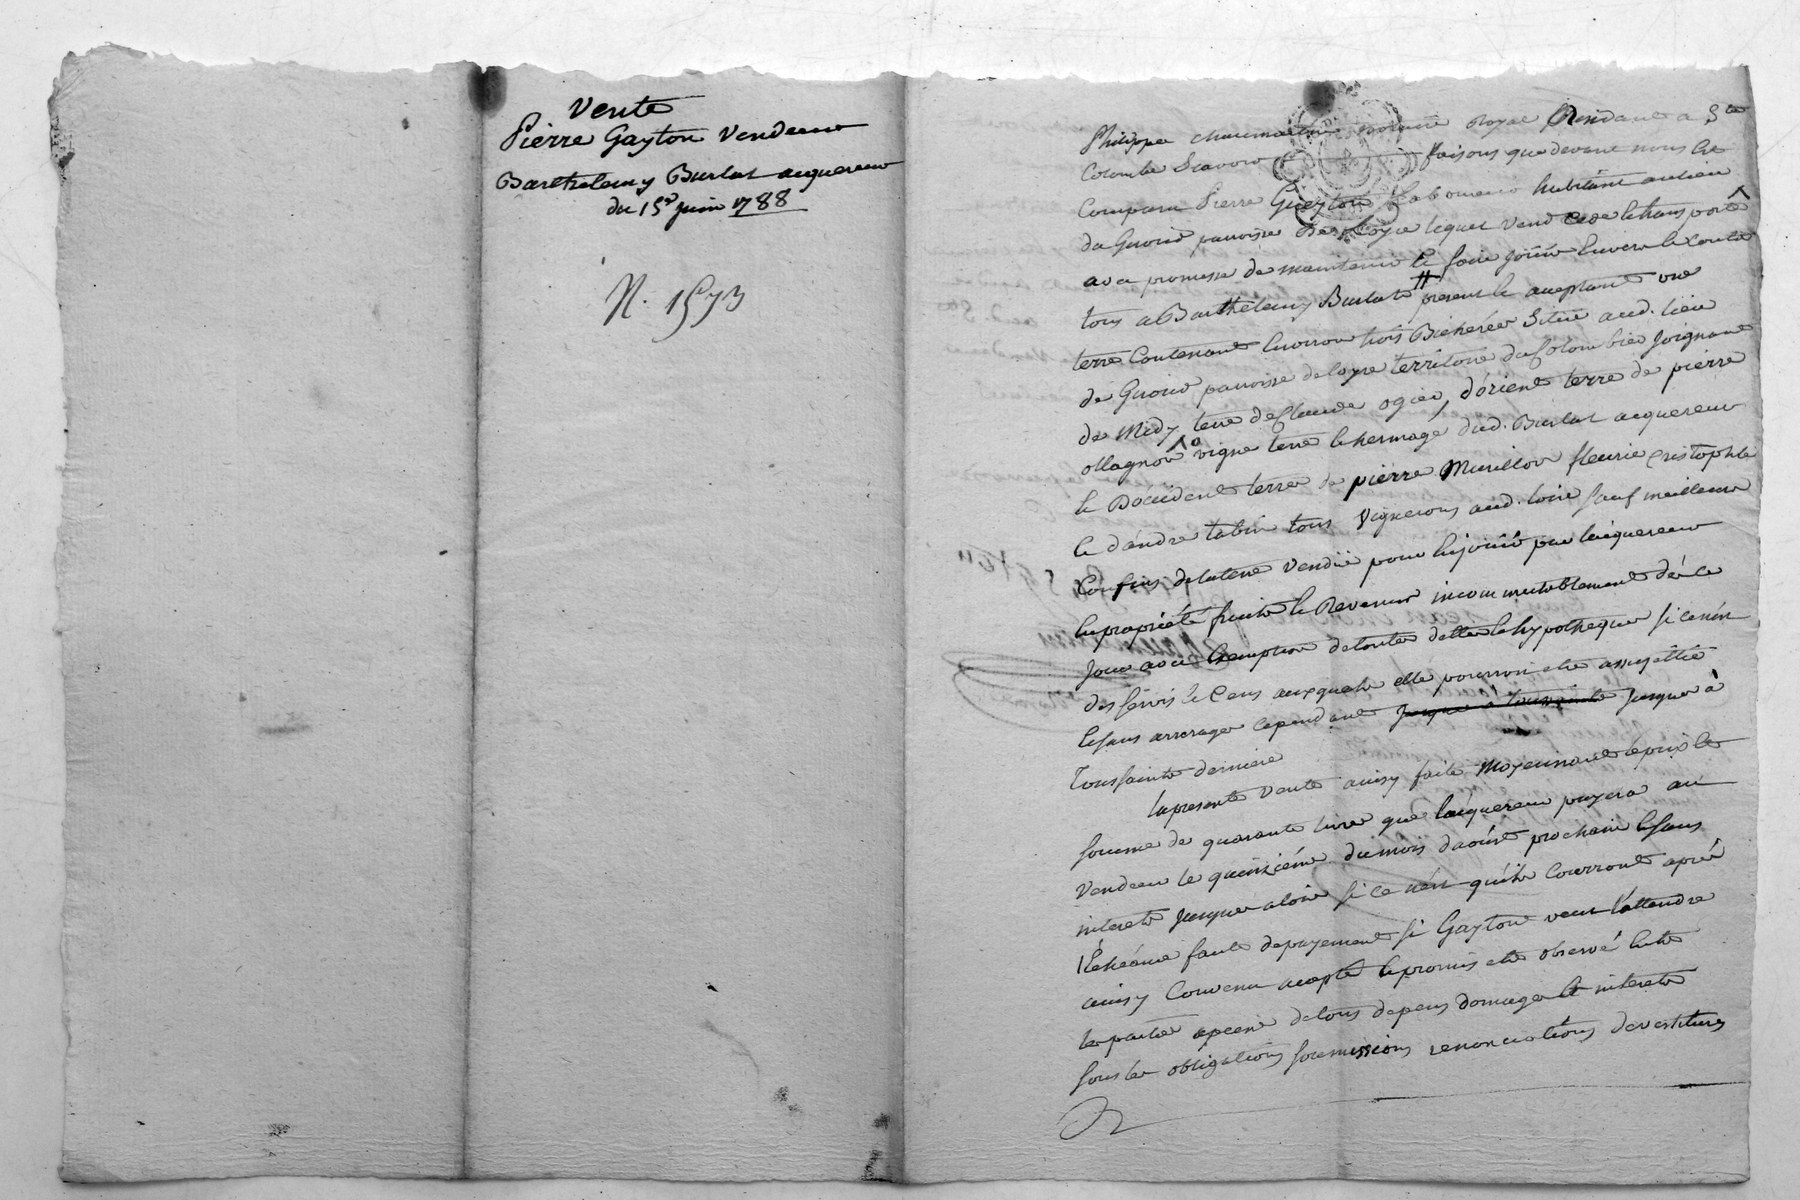 Vente
Pierre Gayton Vendeur
Barthelemy Burlat acquereur
du 15e juin 1788
N. 1573
Philippe chaumartin notaire Royal Residant a Ste
Colombe faisons que devant nous Est
Comparu Pierre Gueyton Laboureur habitant au lieu
du paroisse de Loyre lequel vend cede et transporte
avec promesse de maintenir et faire jouir Envers et Contre
tous a Barthelemy Burlat present et acceptant une
terre Contenant Environ trois Bicherées Située aud. lieu
de paroisse de loyre territoire du Colombier Joignant
de Midy terre de Claude ogier, d'orient terre de pierre
ollagnon vigne terre et hermage dud. Burlat acquereur
et D'occident terre de pierre Murillon fleurie Cristophle
et d'andre tous Vignerons aud. loire sauf meilleurs
Confins de laterre Vendüe pour En jouir par lacquereur
En propriété fruits et Revenus incommutablement dès ce
Jour avec Exemption detoutes dettes et hypotheques si ce n'est
des servis et Cens auxquels elle pourroit etre assujettie
Et sans arrerages cependant jusque à toussaints Jusque à
Toussaints derniere
la presente Vente ainsy faite Moyennant le prix et
somme de quarante livres que lacquereur payera au
Vendeur le quinzième du mois d'août prochain Et sans
interets Jusque alors si ce n'est qu'ils Courront après
l'Echéance faute de payement si Gayton veut l'attendre
ainsy Convenu accepté et promis etre observé Entre
les parties a peine de tous depens domages et interets
sous les obligations soumissions renonciations devestitures